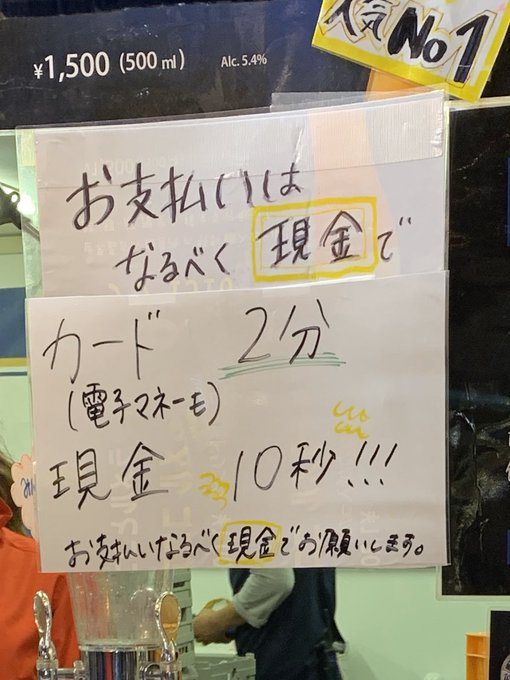 人気No1
¥1,500 (500 ml) Alc. 5.4%
お支払いは
なるべく 現金で
カード 2分
(電子マネーも)
現金 10秒!!!
お支払いなるべく現金でお願いします。